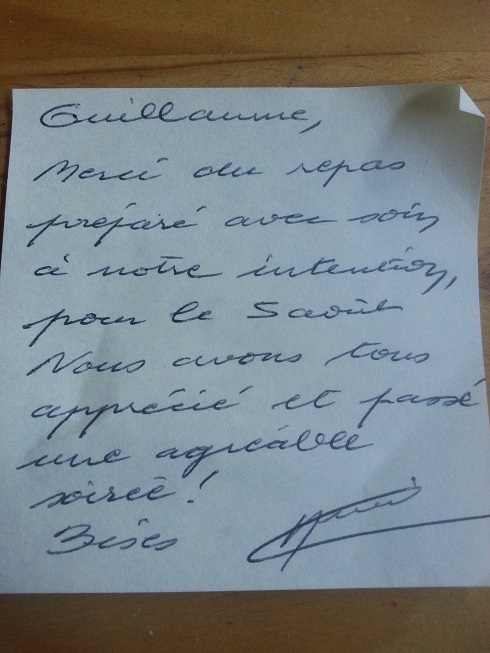 Guillaume,
Merci du repas
préparé avec soin
à notre intention,
pour le 5 août
Nous avons tous
apprécié et passé
une agréable
soirée !
Bises